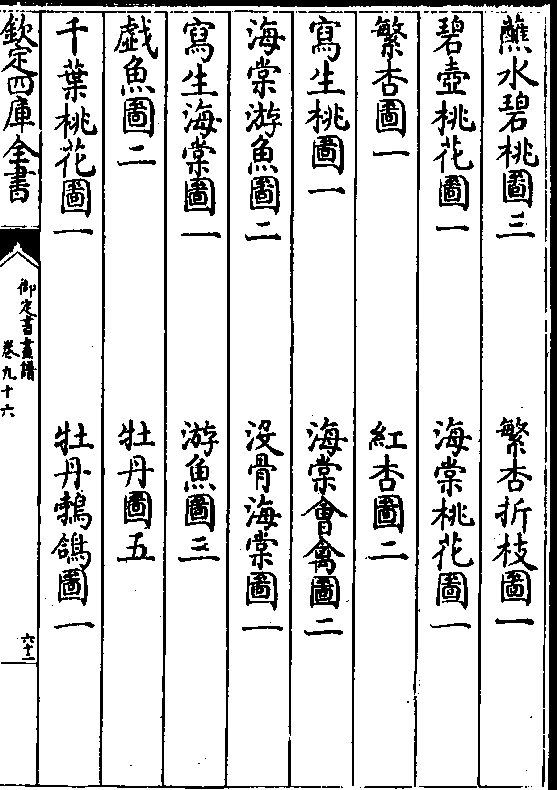 蘸水碧桃圖三　繁杏折枝圖一
碧壺桃花圖一　海棠桃花圖一
繁杏圖一　紅杏圖二
寫生桃圖一　海棠會禽圖二
海棠游魚圖二　没骨海棠圖一
寫生海棠圖一　游魚圖三
戯魚圖二　牡丹圖五
千葉桃花圖一　牡丹鵓鴿圖一
欽定四庫全書
御定書畫譜
卷九十六